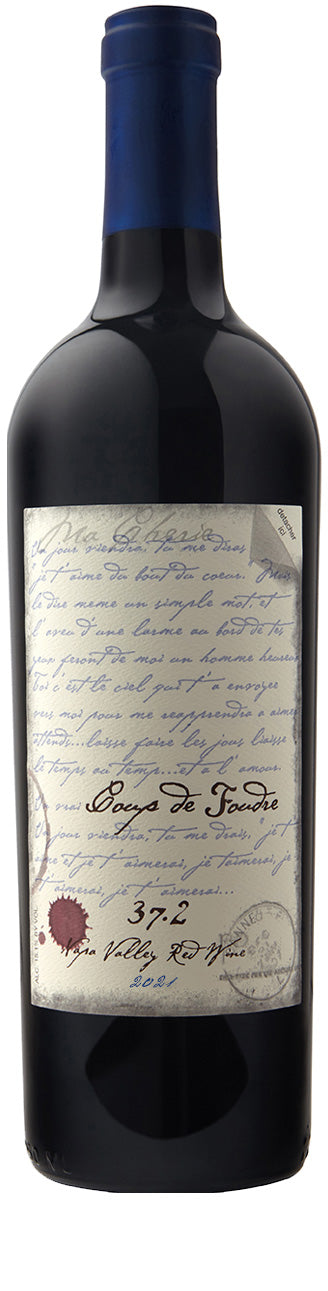 Ma Cherie
detacher
ici
Un jour viendra, tu me diras
"je t'aime du bout du coeur. Mais
le dire meme un simple mot, et
l'aveu d'une larme au bord de tes
yeux feront de moi un homme heureux
Toi c'est le ciel qui t'a envoyee
vers moi pour me reapprendra a aimer
attends...laisse faire les jours laisse
le temps au temps...et a l'amour.
Un vrai Coup de Foudre
Un jour viendra, tu me drais, "je t'
aime et je t'aimerai, je t'aimerai, je
t'aimerai, je t'aimerai...
37.2
Napa Valley Red Wine
2021